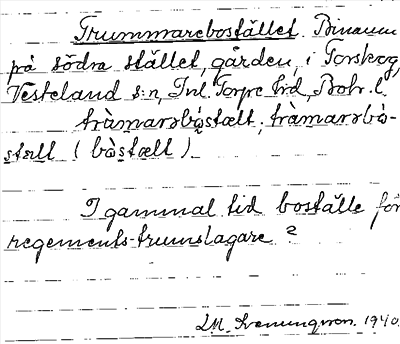 Trummarebostället. Binamn
på södra stället, gården, i Torskog,
Västerland s:n, Inl. Torpe hd, Boh. l.
tràmarəbò̀stælt, tràmarəbò̀-
stæll (bò̀stælt).
I gammal tid boställe för
regements-trumslagare?
1940.